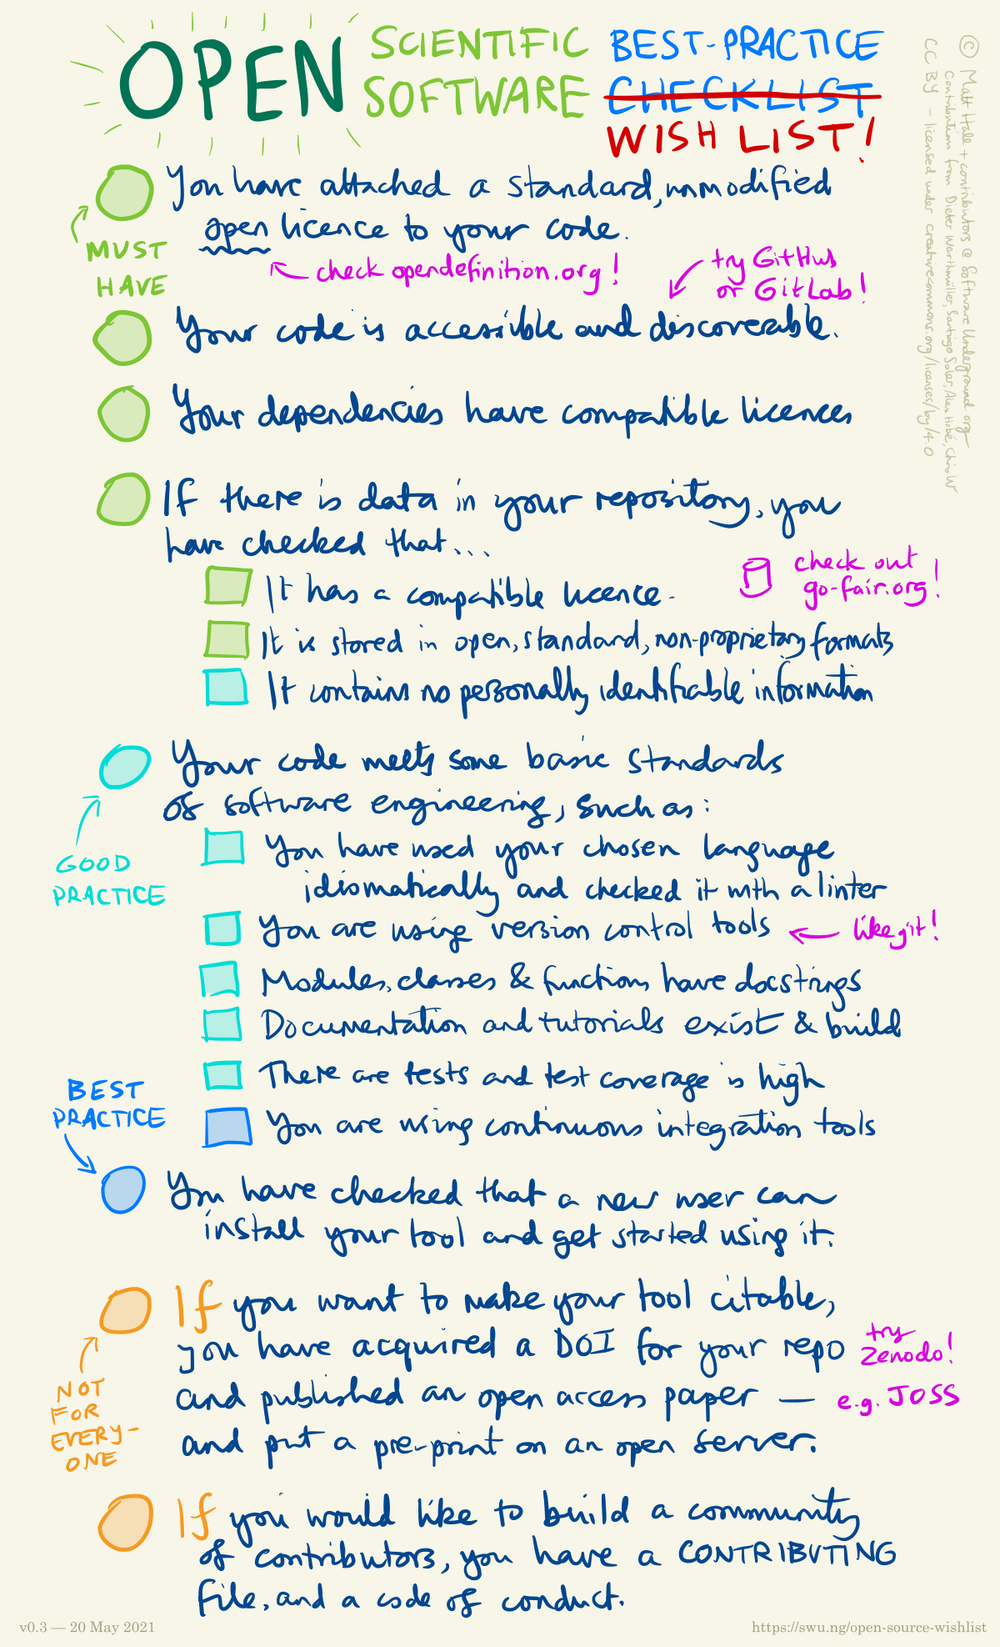 OPEN SCIENTIFIC SOFTWARE BEST-PRACTICE CHECKLIST
WISH LIST!
You have attached a standard, unmodified
open licence to your code.
MUST
HAVE
check opendefinition.org!
try GitHub
or GitLab!
Your code is accessible and discoverable.
Your dependencies have compatible licences
If there is data in your repository, you
have checked that...
It has a compatible licence.
check out
go-fair.org!
It is stored in open, standard, non-proprietary formats
It contains no personally identifiable information
Your code meets some basic standards
of software engineering, such as:
GOOD
PRACTICE
You have used your chosen language
idiomatically and checked it with a linter
You are using version control tools
like git!
Modules, classes & functions have docstrings
Documentation and tutorials exist & build
There are tests and test coverage is high
BEST
PRACTICE
You are using continuous integration tools
You have checked that a new user can
install your tool and get started using it.
If you want to make your tool citable,
you have acquired a DOI for your repo
try
Zenodo!
and published an open access paper — e.g. JOSS
and put a pre-print on an open server.
NOT
FOR
EVERY-
ONE
If you would like to build a community
of contributors, you have a CONTRIBUTING
file, and a code of conduct.
© Matt Hall + contributors @ SoftwareUnderground.org
Contributions from Dieter Werthmüller, Santiago Soler, Chris W
CC BY – licensed under creativecommons.org/licenses/by/4.0
v0.3 — 20 May 2021
https://swu.ng/open-source-wishlist